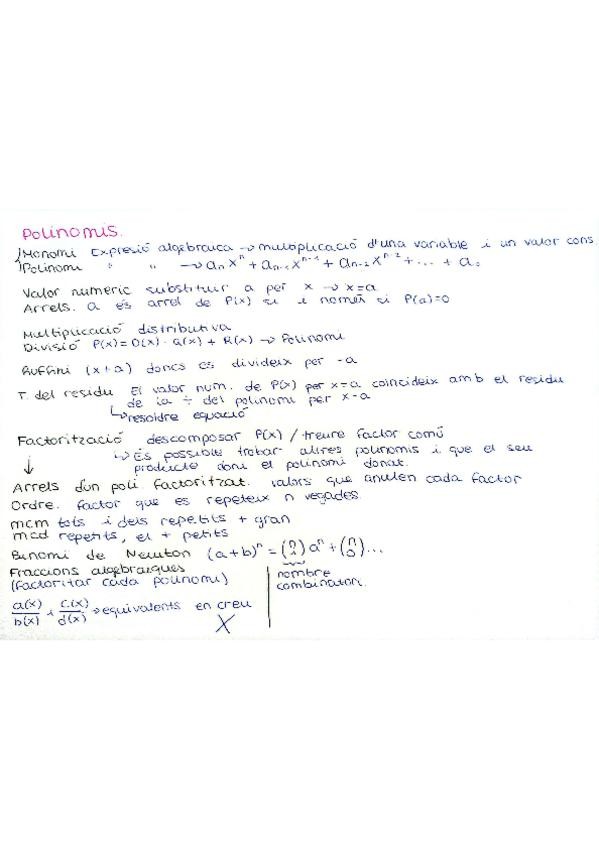 Polinomis.
Monomi Expresió algebraica → multiplicació d'una variable i un valor cons
Polinomi " " → aₙxⁿ + aₙ₋₁xⁿ⁻¹ + aₙ₋₂xⁿ⁻² + ... + a₀
Valor numeric substituir a per x → x=a
Arrels. a és arrel de P(x) si i només si P(a)=0
Multiplicació distributiva
Divisió P(x)=D(x)·Q(x)+R(x) → Polinomi
Ruffini (x+a) doncs es divideix per -a
T. del residu El valor num. de P(x) per x=a coincideix amb el residu
de la ÷ del polinomi per x-a
↳ resoldre equació
Factorització descomposar P(x) / treure factor comú
↳ És possible trobar altres polinomis i que el seu
producte doni el polinomi donat.
↓
Arrels d'un poli factoritzat. valors que anulen cada factor
Ordre. factor que es repeteix n vegades.
mcm tots i dels repetits + gran
mcd repetits, el + petits
Binomi de Newton (a+b)ⁿ = (n n) aⁿ + (n 0) ...
Fraccions algebraiques
(factoritar cada polinomi)
nombre
combinatori.
a(x)/b(x) + c(x)/d(x) → equivalents en creu
X